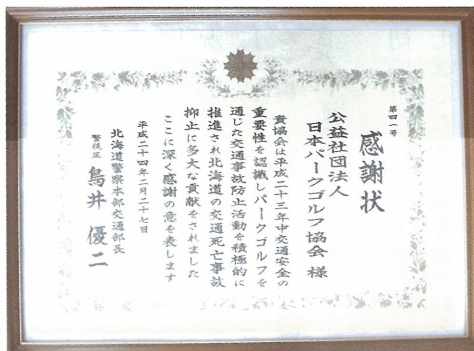 第四一号
感謝状
公益社団法人
日本パークゴルフ協会 様
貴協会は平成二十三年中交通安全の
重要性を認識しパークゴルフを
通じた交通事故防止活動を積極的に
推進され北海道の交通死亡事故
抑止に多大な貢献をされました
ここに深く感謝の意を表します
平成二十四年二月二十七日
北海道警察本部交通部長
警視正 鳥井優二